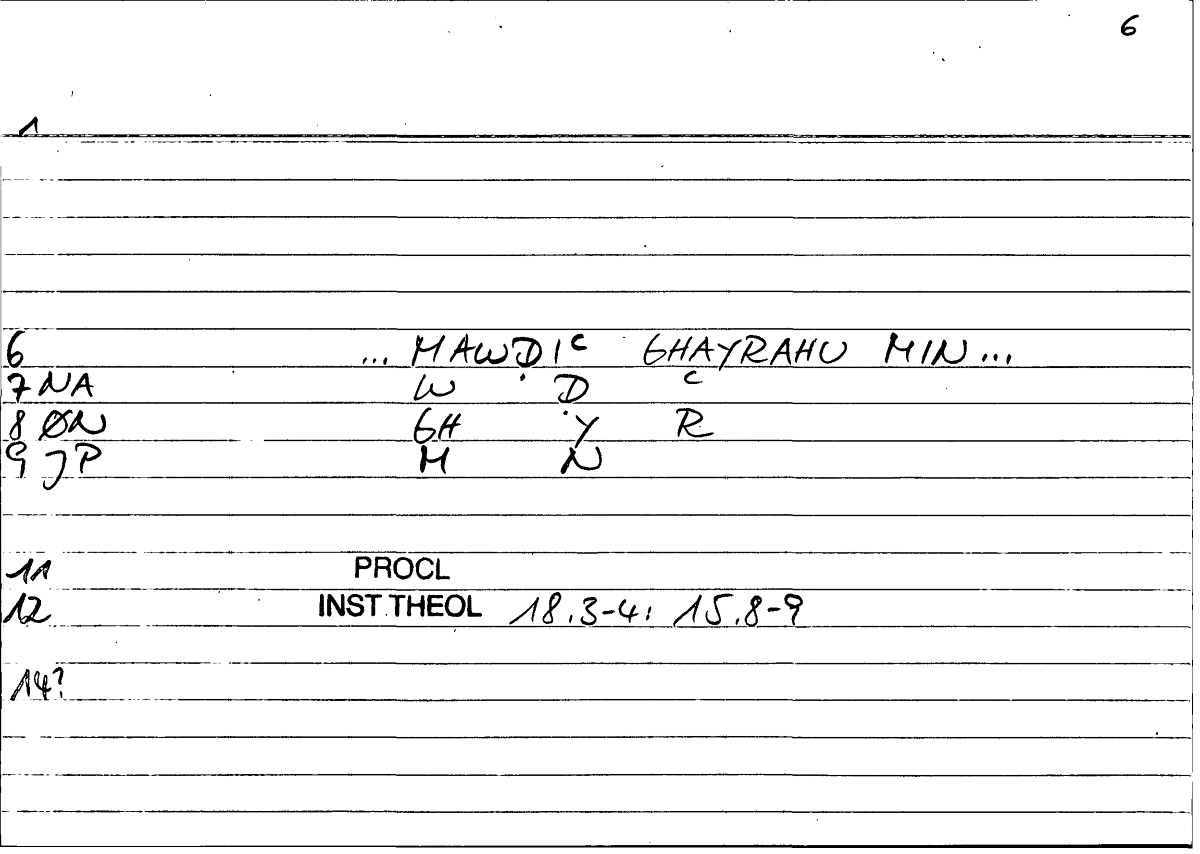 6
1
6 ... MAWḌIʿ GHAYRAHU MIN...
7 NA W Ḍ ʿ
8 ØN GH Y R
9 JP M N
11 PROCL
12 INST.THEOL 18.3-4: 15.8-9
14?